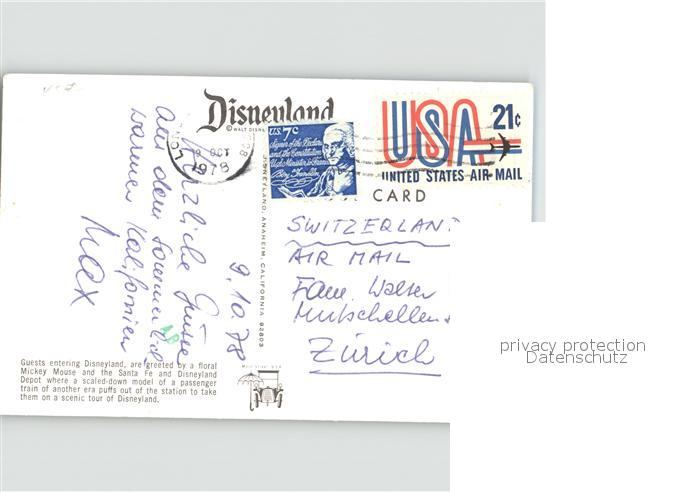 Disneyland
© WALT DISNEY
9 OCT
1978
U.S. 7c
Signer of the Declara
and the Constitution
Benj Franklin
USA 21c
UNITED STATES AIR MAIL
CARD
Herzliche Grüsse
aus dem sommerlich
warmen Kalifornien
Max
9.10.78
DISNEYLAND, ANAHEIM, CALIFORNIA 92803
SWITZERLAN
AIR MAIL
Fam. Walter
Mutschellen
Zürich
Guests entering Disneyland, are greeted by a floral
Mickey Mouse and the Santa Fe and Disneyland
Depot where a scaled-down model of a passenger
train of another era puffs out of the station to take
them on a scenic tour of Disneyland.
Main Street U.S.A.
privacy protection
Datenschutz